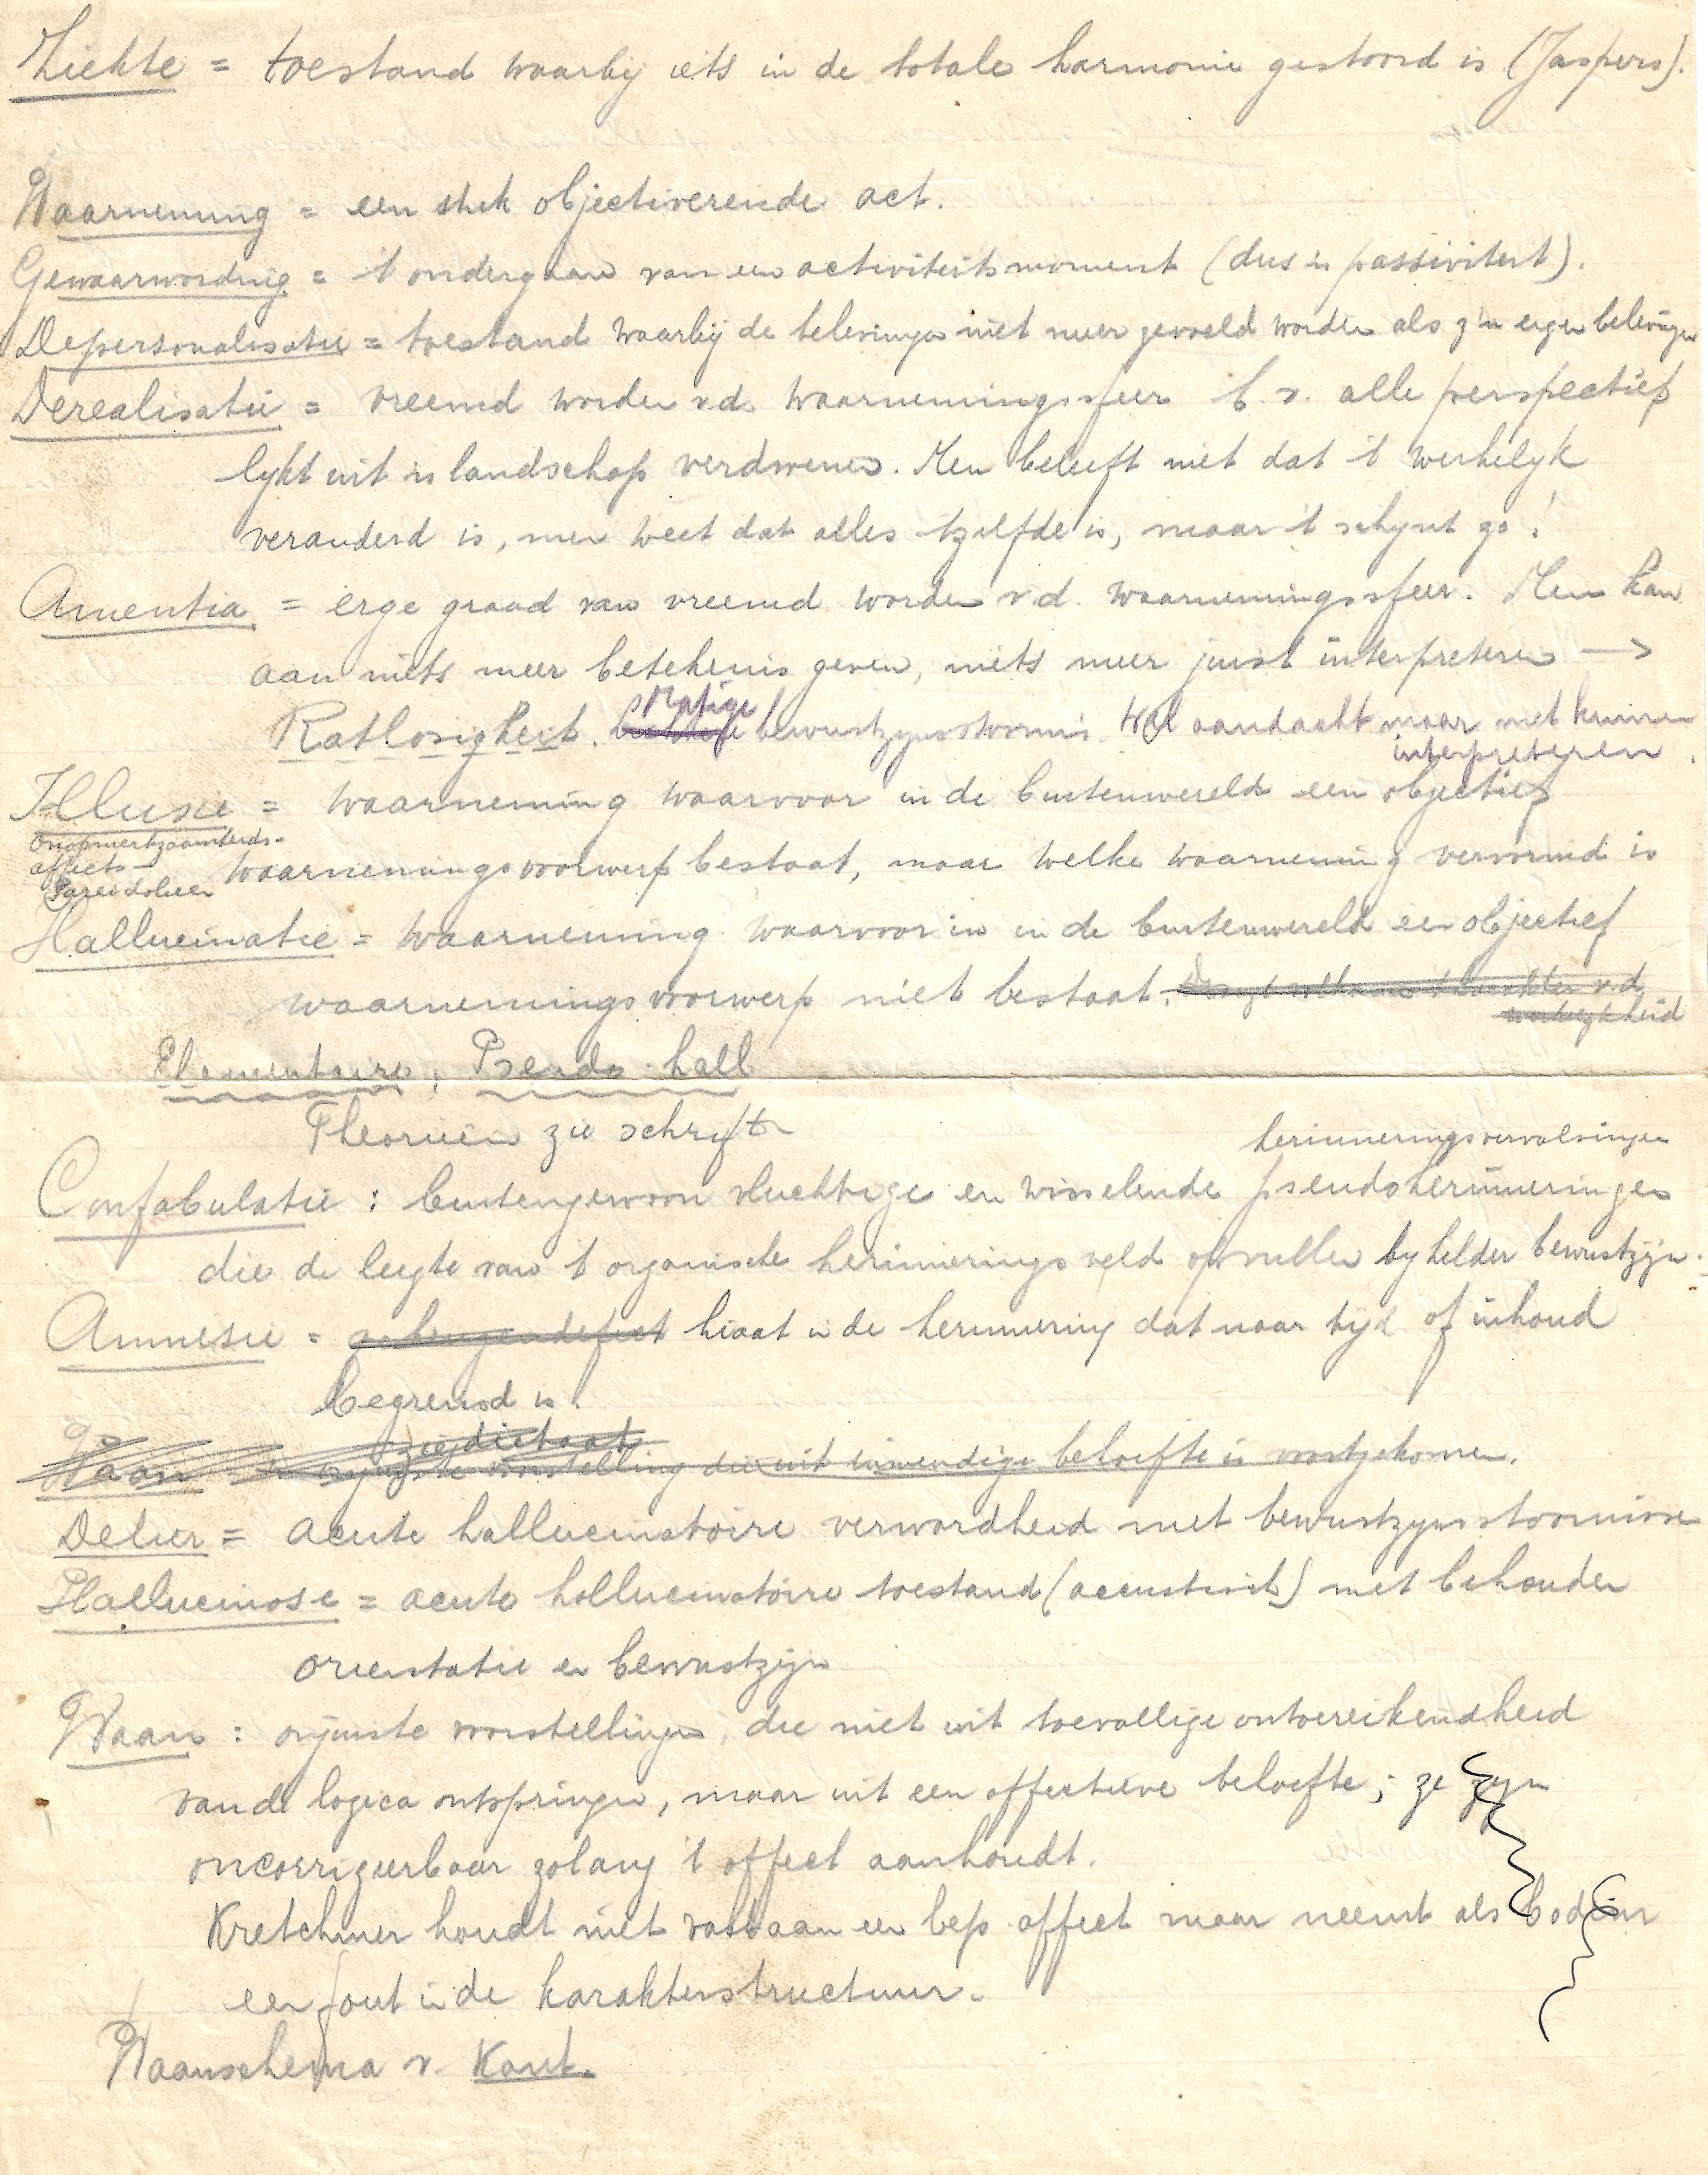 Ziekte = toestand waarbij iets in de totale harmonie gestoord is (Jaspers).
Waarneming = een stuk objectiverende act.
Gewaarwording = 't ondergaan van een activiteitsmoment (dus 'n passiviteit).
Depersonalisatie = toestand waarbij de belevingen niet meer gevoeld worden als z'n eigen belevingen
Derealisatie = vreemd worden v.d. waarnemingssfeer b.v. alle perspectief
lykt uit 'n landschap verdwenen. Men beleeft niet dat 't werkelyk
veranderd is, men weet dat alles 'tzelfde is, maar 't schynt zo!
Amentia = erge graad van vreemd worden v.d. waarnemingssfeer. Men kan
aan niets meer betekenis geven, niets meer juist interpreteren →
Ratlosigkeit. Matige bewustzynsstoornis. Wel aandacht maar niet kunnen
interpreteren.
Illusie = waarneming waarvoor in de buitenwereld een objectief
Onopmerkzaamheids-
affect-
Pareidolieen
waarnemingsvoorwerp bestaat, maar welke waarneming vervormd is
Hallucinatie = waarneming waarvoor in in de buitenwereld een objectief
waarnemingsvoorwerp niet bestaat. v.d.
werkelykheid
Elementaire; Pseudo-hall
Theorieën zie schrift
herinneringsvervalsingen
Confabulatie : buitengewoon vluchtige en wisselende pseudoherinneringen
die de leegte van 't organische herinneringsveld opvullen by helder bewustzyn.
Amnesie = geheugendefect hiaat in de herinnering dat naar tyd of inhoud
begrensd is.
zie dictaat
Waan = onjuiste voorstelling die uit inwendige behoefte is voortgekomen.
Delier = acute hallucinatoire verwardheid met bewustzynsstoornissen
Hallucinose = acute hallucinatoire toestand (acoustisch) met behouden
orientatie en bewustzyn
Waan : onjuiste voorstellingen, die niet uit toevallige ontoereikendheid
van de logica ontspringen, maar uit een affectieve behoefte; ze zyn
oncorrigeerbaar zolang 't affect aanhoudt.
Kretchmer houdt niet vast aan een bep. affect maar neemt als bodem
een fout in de karakterstructuur.
Waanschema v. Kant.